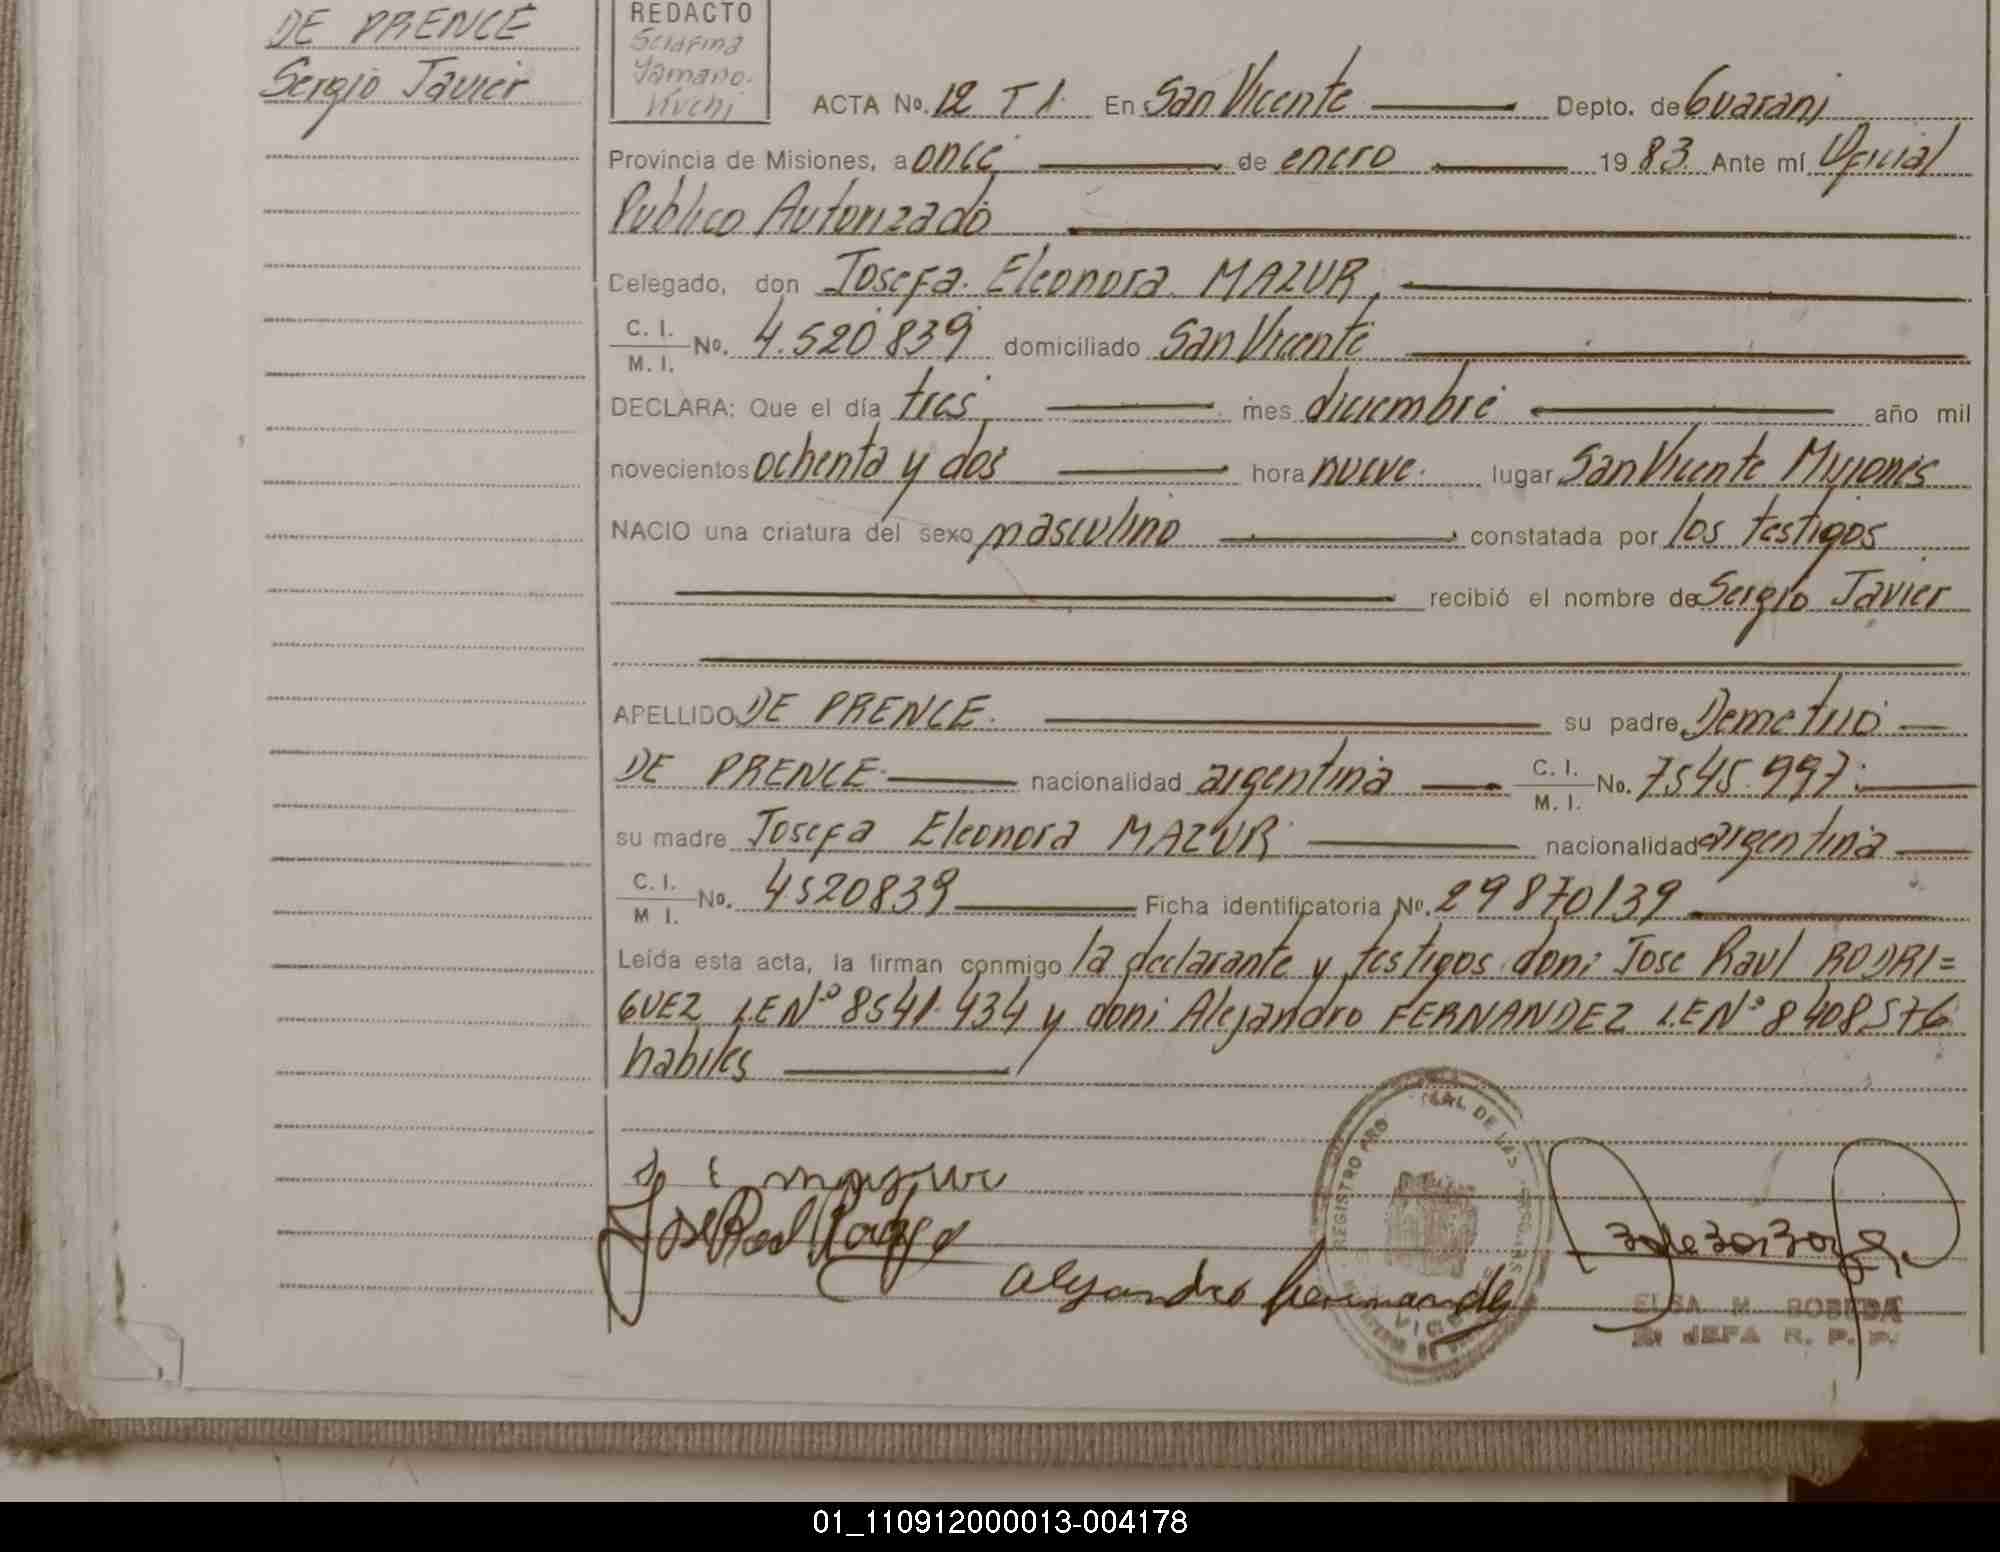 DE PRENCE
Sergio Javier
REDACTO
Serafina
Yamano.
Kívchi
ACTA No. 12 T 1. En San Vicente Depto. de Guarani
Provincia de Misiones, a once de enero 1983. Ante mí Oficial
Publico Autorizado
Delegado, don Josefa Eleonora MAZUR,
C. I.
M. I.
No. 4.520.839 domiciliado San Vicente
DECLARA: Que el día tres mes diciembre año mil
novecientos ochenta y dos hora nueve. lugar San Vicente Misiones
NACIO una criatura del sexo masculino constatada por los testigos
recibió el nombre de Sergio Javier
APELLIDO DE PRENCE. su padre Demetrio
DE PRENCE nacionalidad argentina C. I.
M. I.
No. 7545.997.
su madre Josefa Eleonora MAZUR nacionalidad argentina
C. I.
M I.
No. 4520839 Ficha identificatoria No. 29870139
Leída esta acta, la firman conmigo la declarante y testigos don: Jose Raul RODRI=
GUEZ L.E Nº 8541.434 y don: Alejandro FERNANDEZ L.E Nº 8408576
habiles
J E mazur
Jose Raul
Alejandro Fernandez
REGISTRO PRO AL DE LAS
ELSA M.
JEFA R. P. P.
01_110912000013-004178